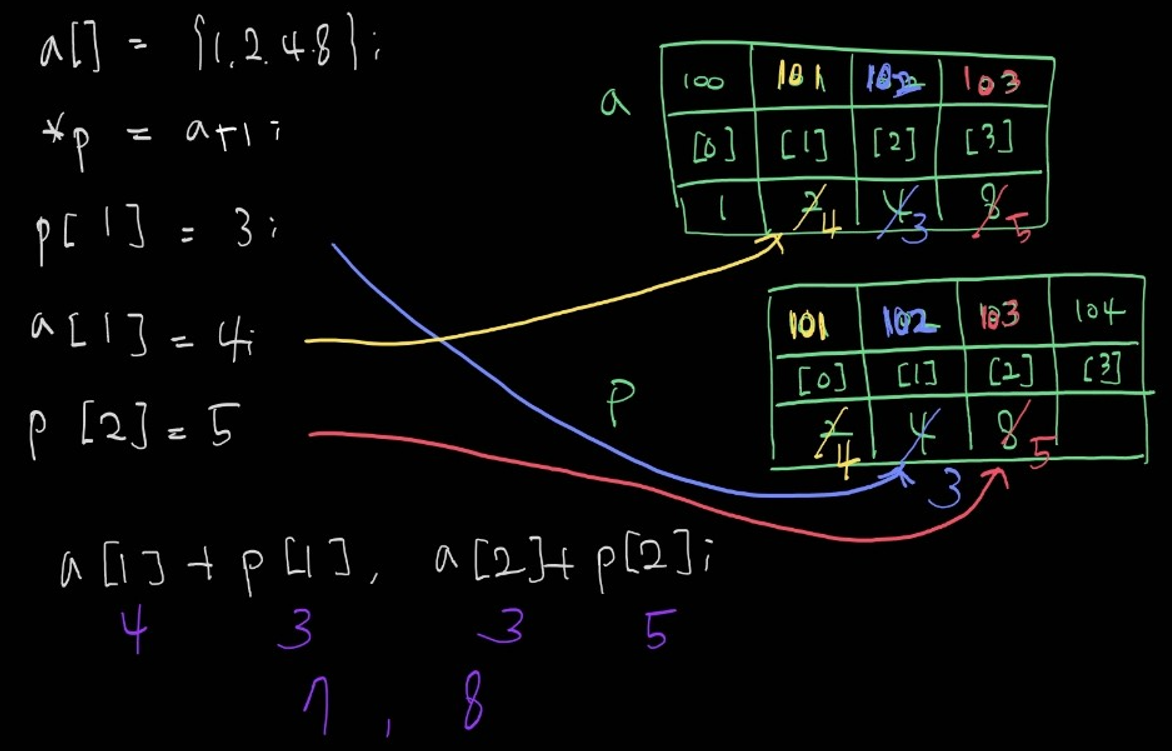 a[] = {1, 2. 4. 8};
*p = a+1;
p[1] = 3;
a[1] = 4;
p[2] = 5
a
100 101 102 103
[0] [1] [2] [3]
1 2 4 4 3 8 5
p
101 102 103 104
[0] [1] [2] [3]
2 4 4 8 5
3
a[1] + p[1], a[2] + p[2];
4 3 3 5
7, 8